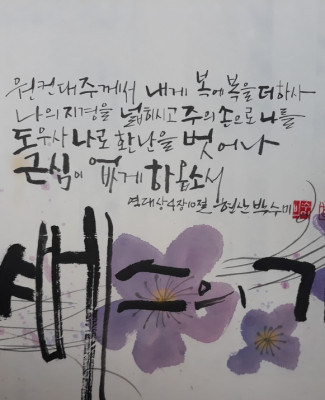 원컨대 주께서 내게 복에 복을 더하사
나의 지경을 넓히시고 주의 손으로 나를
도우사 나로 환난을 벗어나
근심이 없게 하옵소서
역대상4장10절 현산 박수미